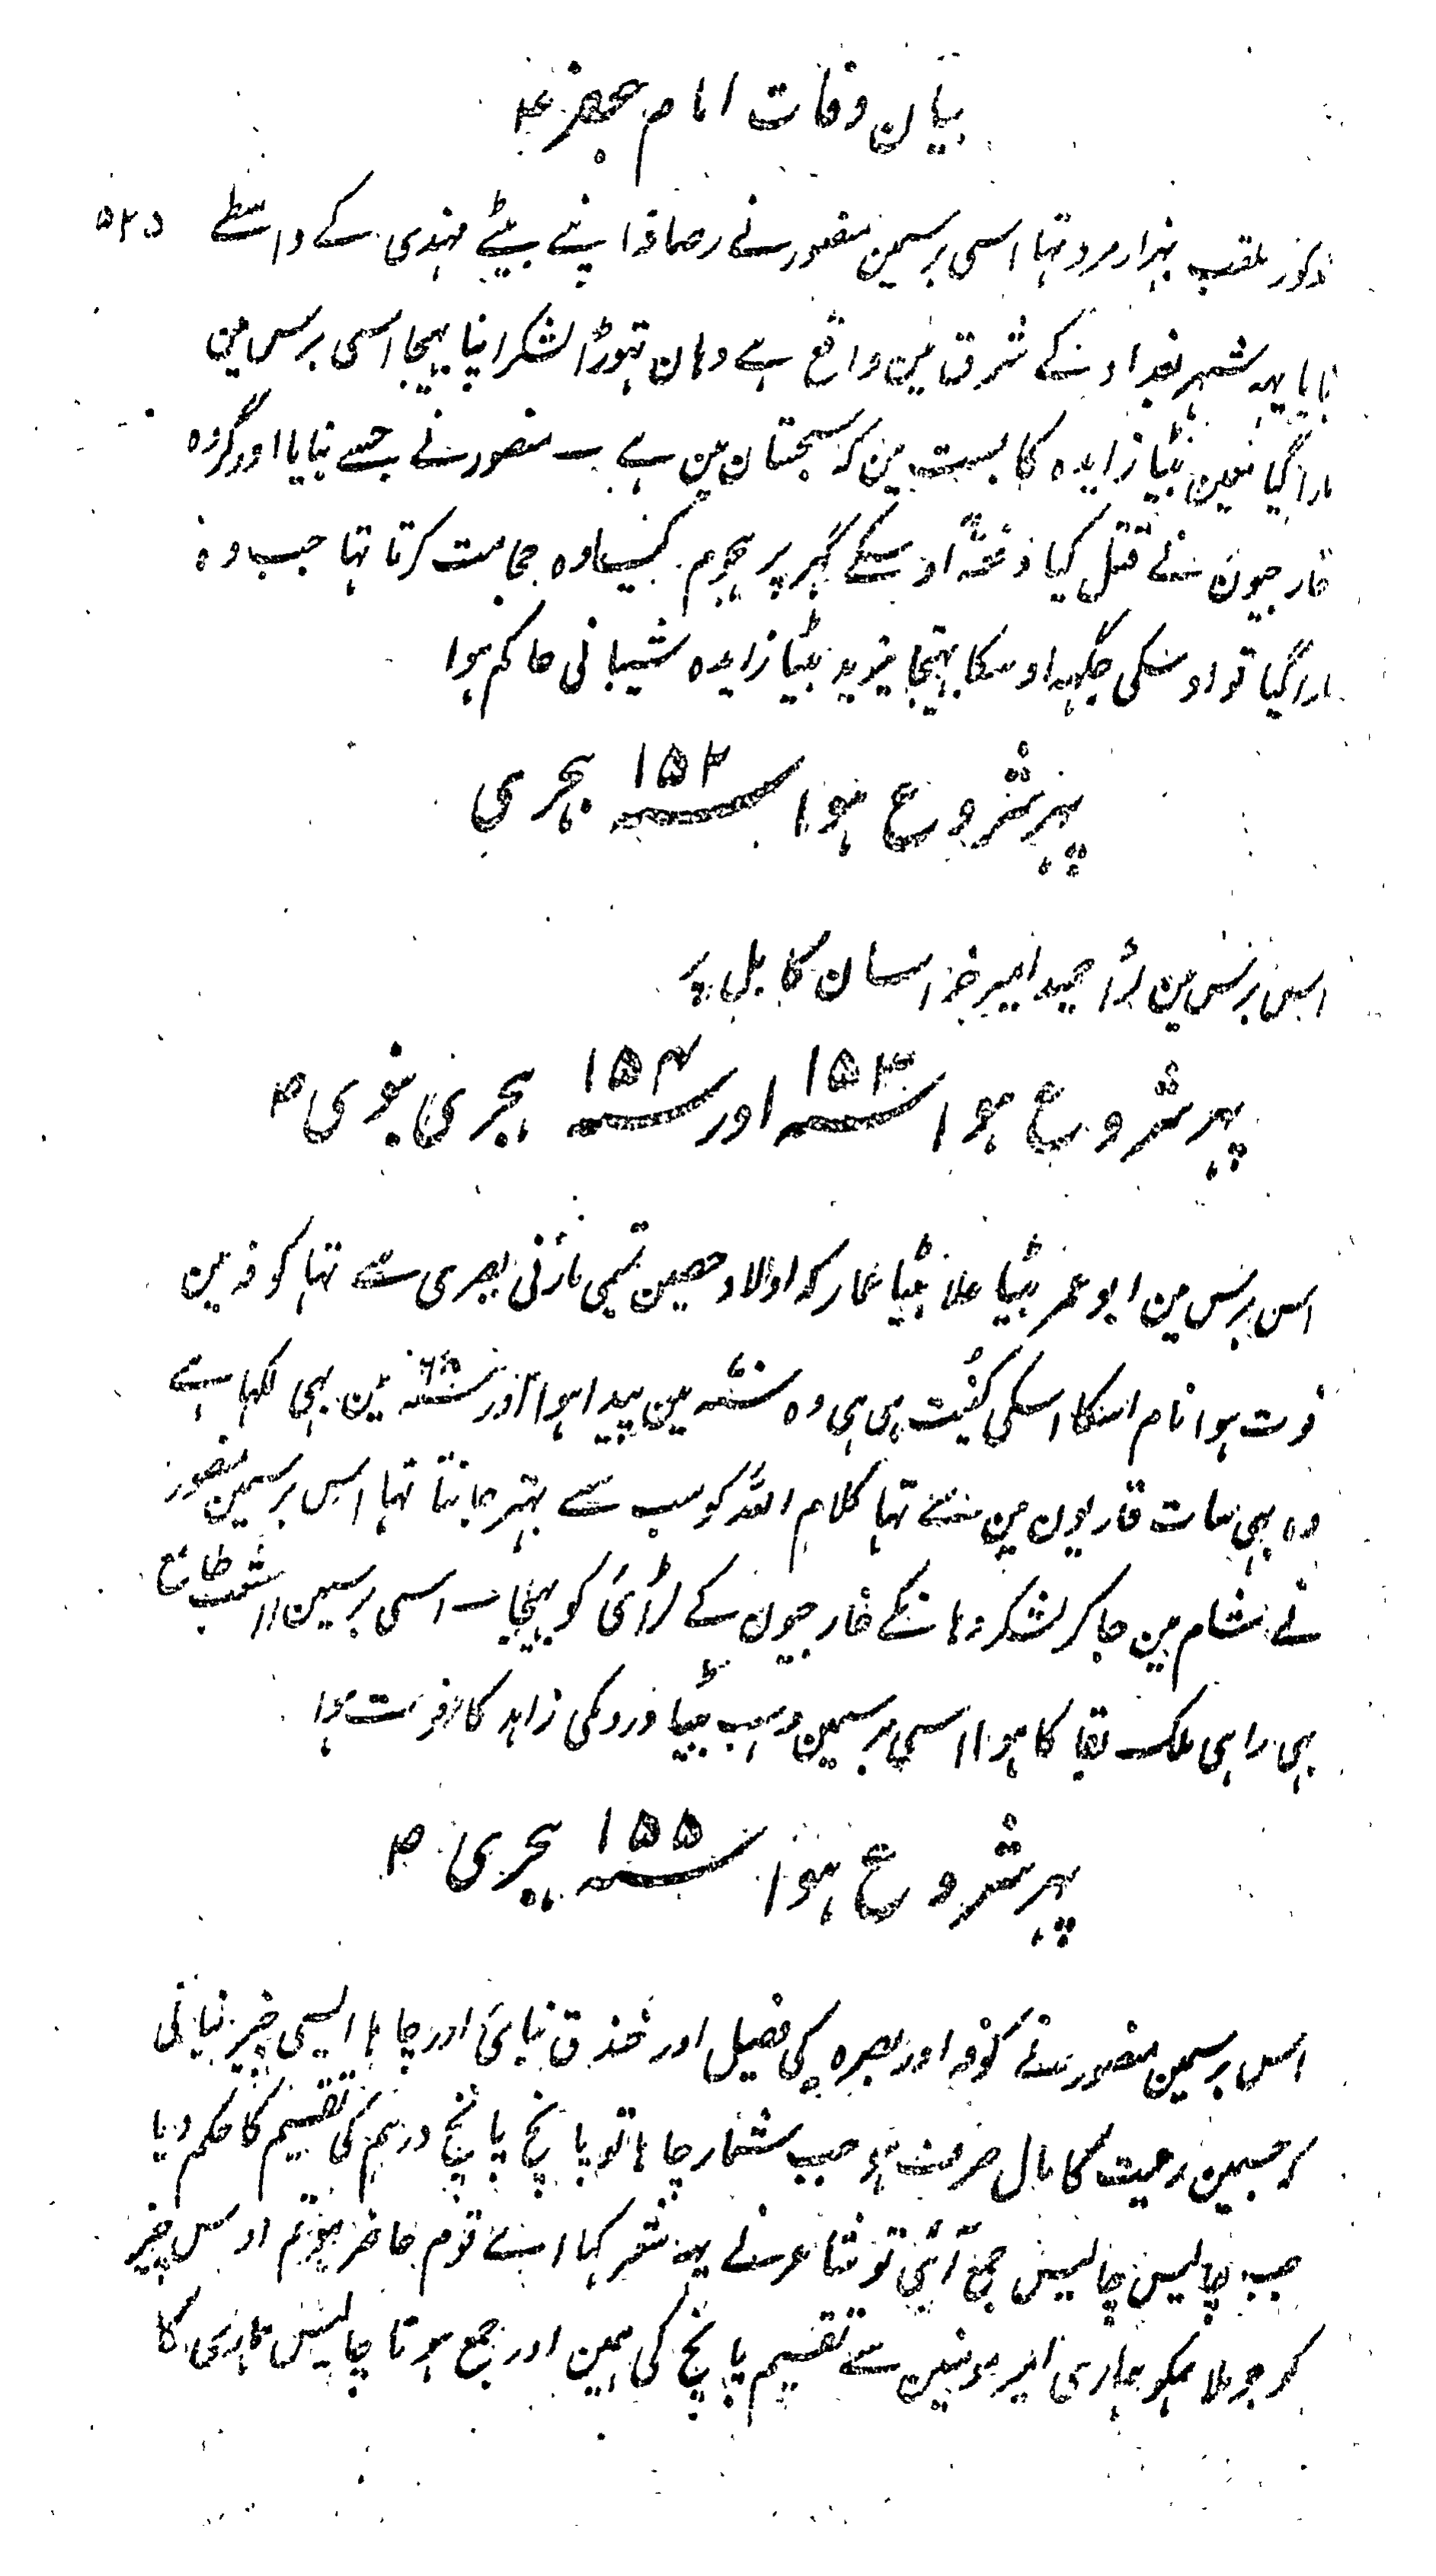 بیان وفات امام جعفر ع
مذکور ملقب بہزار مرد تہا اسی برسمین منصور نے رصافہ اپنے بیٹے مہدی کے واسطے ۵۲۵
بنایا یہہ شہر بغداد کے شرق مین واقع ہے وہان تہوڑا لشکر اپنا بہیجا اسی برس مین
مارا گیا معین بیٹیا زایدہ کا بست مین کہ سجستان مین ہے ۔ منصور نے جسے بنایا اور گروہ
خارجیون نے قتل کیا دفعۃً اوسکے گہر پر ہجوم کیا وہ حجامت کرتا تہا جب وہ
مارا گیا تو اوسکی جگہہ اوسکا بہتیجا یزید بیٹیا زایدہ شیبانی حاکم ہوا
پہر شروع ہوا سنہ ۱۵۲ ہجری
اس برس مین لڑا حمید امیر خراسان کابل پر
پہر شروع ہوا سنہ ۱۵۳ اور سنہ ۱۵۴ ہجری نبوی ص
اس برس مین ابو عمر بیٹیا علا بیٹیا عمار کہ اولاد حصین تمیمی مازنی بصری سے تہا کوفہ مین
فوت ہوا نام اسکا اسکی کنیت ہی ہی وہ سنہ ۷۰ مین پیدا ہوا اور سنہ ۶۸ مین بہی لکہا ہے
وہ بہی سات قاریون مین سے تہا کلام اللہ کو سب سے بہتر جانتا تہا اس برسمین منصور
نے شام مین جا کر لشکر وہانکے خارجیون کے لڑائی کو بہیجا ۔ اسی برسمین اشعب طامع
بہی راہی ملک بقا کا ہوا اسی برسمین وہب بیٹیا ورد مکی زاہد کا فوت ہوا
پہر شروع ہوا سنہ ۱۵۵ ہجری ص
اس برسمین منصور نے کوفہ اور بصرہ کی فصیل اور خندق بنائی اور چاہا ایسی چیز بنانی
کہ جسمین رعیت کا مال صرف ہو جب شمار چاہا تو پانچ پانچ درہم کی تقسیم کا حکم دیا
جب چالیس چالیس جمع آئی تو شاعر نے یہہ شعر کہا اے قوم حاضر ہو تم اوس چیز
کو جو ملا ہمکو ہماری امیر مومنین سے تقسیم پانچ کی ہمین اور جمع ہوتا چالیس ہماری کا